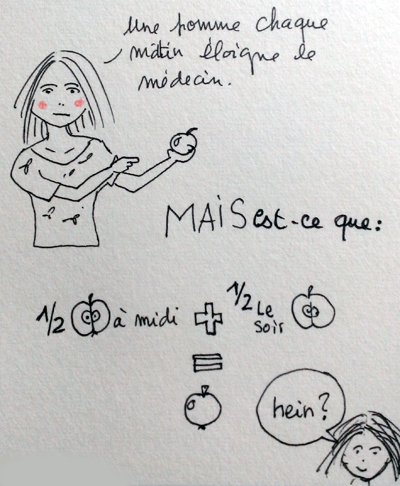 Une pomme chaque
matin éloigne le
médecin.
MAIS est-ce que:
1/2 à midi + 1/2 Le
soir
=
hein?